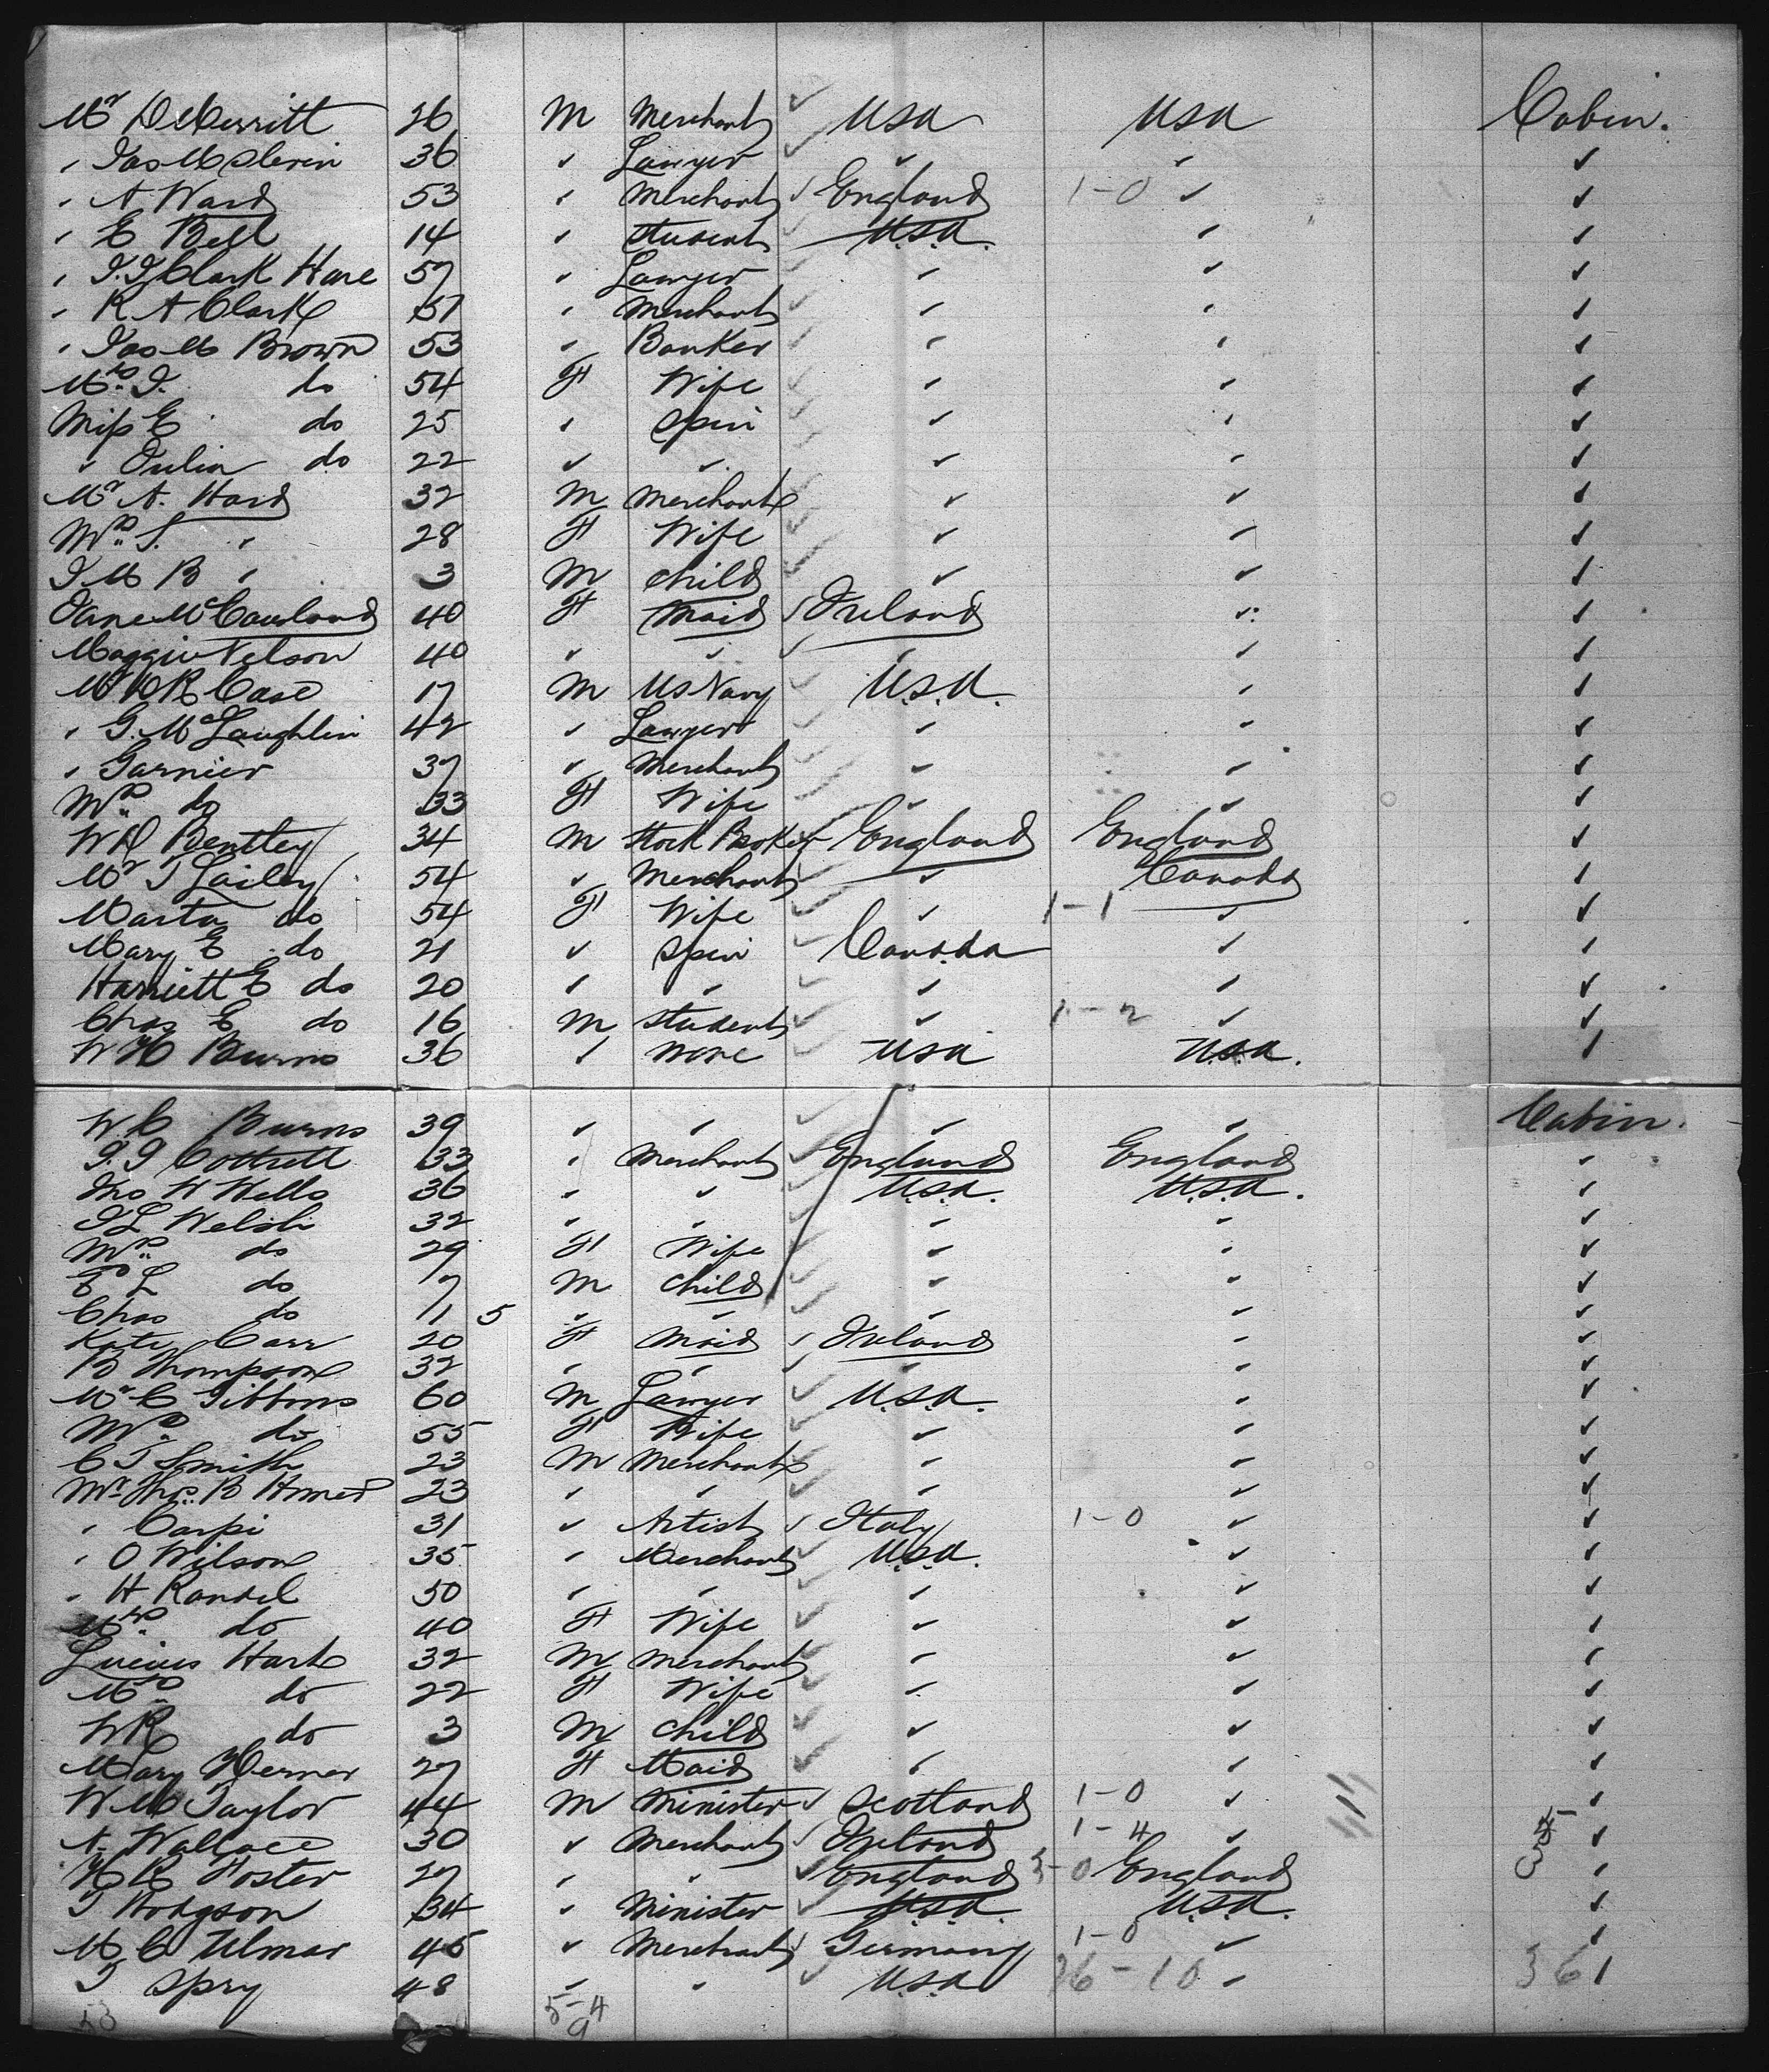 Mr DeMerritt 26 M Merchant USA USA Cabin.
" Jas McSlevin 36 " Lawyer " " "
" A Ward 53 " Merchant England 1-0 " "
" E Bell 14 " Student U.S.A. " "
" J.J Clark Hare 57 " Lawyer " " "
" R A Clark 51 " Merchant " " "
" Jas M Brown 53 " Banker " " "
Mrs J. do 54 F Wife " " "
Miss E do 25 " Spin " " "
" Julia do 22 " " " " "
Mr A. Hard 32 M Merchant " " "
Mrs S. " 28 F Wife " " "
J M B " 3 M Child " " "
Jane McCausland 40 F Maid Ireland " "
Maggie Nelson 40 " " " " "
Mr W R Case 17 M US Navy U.S.A. " "
" G. McLaughlin 42 " Lawyer " " "
" Garnier 37 " Merchant " " "
Mrs do 33 F Wife " " "
W H Bentley 34 M Stock Broker England England "
Mr T Lailey 54 " Merchant " Canada "
Marta do 54 F Wife " 1-1 " "
Mary E do 21 " Spin Canada " "
Harriett E do 20 " " " " "
Chas E do 16 M Student " 1-2 " "
W H Burns 36 " None USA USA. "
W C Burns 39 " " " " Cabin.
J. J Cottrell 33 " Merchant England England "
Jno W Wells 36 " " U.S.A. U.S.A. "
J L Welsh 32 " " " " "
Mrs do 29 F Wife " " "
E L do 7 M Child " " "
Chas do 11 5 " " " " "
Kate Carr 20 F Maid Ireland " "
B Thompson 32 " " " " "
Mr C Gibbons 60 M Lawyer U.S.A. " "
Mrs do 55 F Wife " " "
C T Smith 23 M Merchant " " "
Mr Thos B Homer 23 " " " " "
" Carpi 31 " Artist Italy 1-0 " "
" O Wilson 35 " Merchant U.S.A. " "
" H Randel 50 " " " " "
Mrs do 40 F Wife " " "
Lucius Hart 32 M Merchant " " "
Mrs do 22 F Wife " " "
W R do 3 M Child " " "
Mary Werner 27 F Maid " " "
W M Taylor 44 M Minister Scotland 1-0 " "
A. Wallace 30 " Merchant Ireland 1-4 " "
H R Foster 27 " " England 3-0 England "
T Hodgson 34 " Minister U.S.A. U.S.A. "
M C Ulmar 45 " Merchant Germany 1-0 " "
T Spry 48 " " U.S.A 36-10 " 361
53 5-4
9